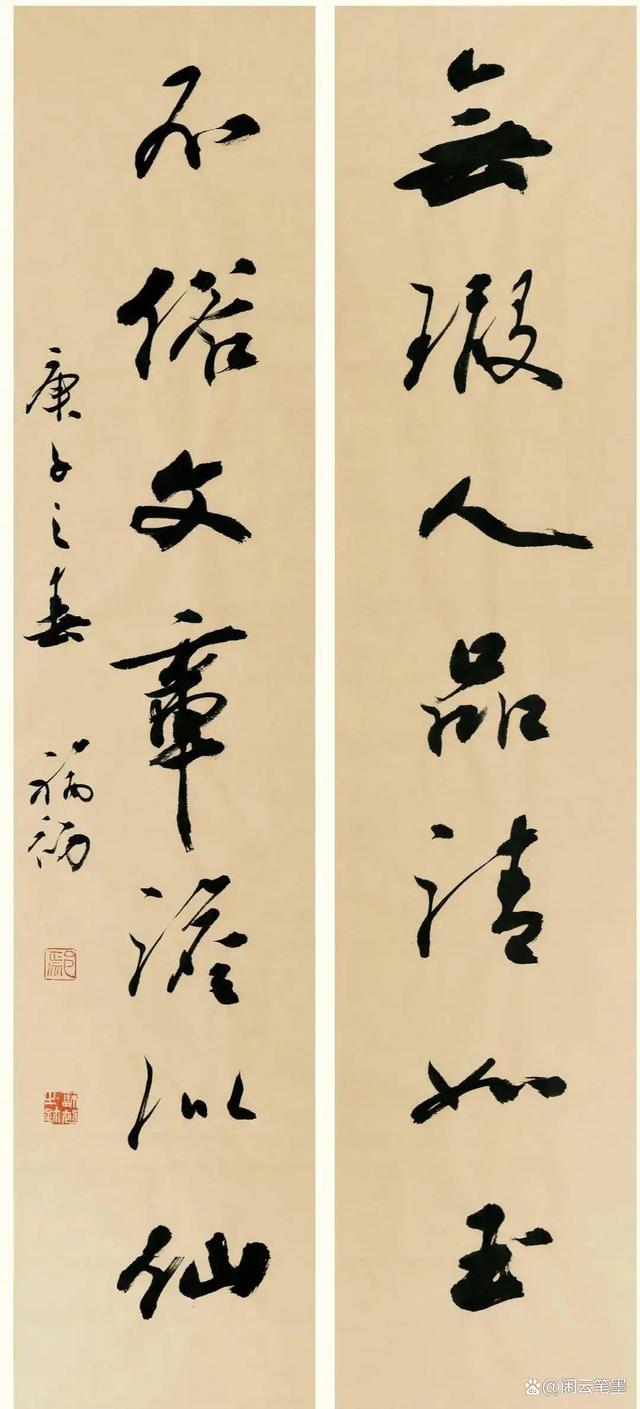 無瑕人品清如玉
不俗文章澹似仙
庚子之春 福初
@闲云笔墨